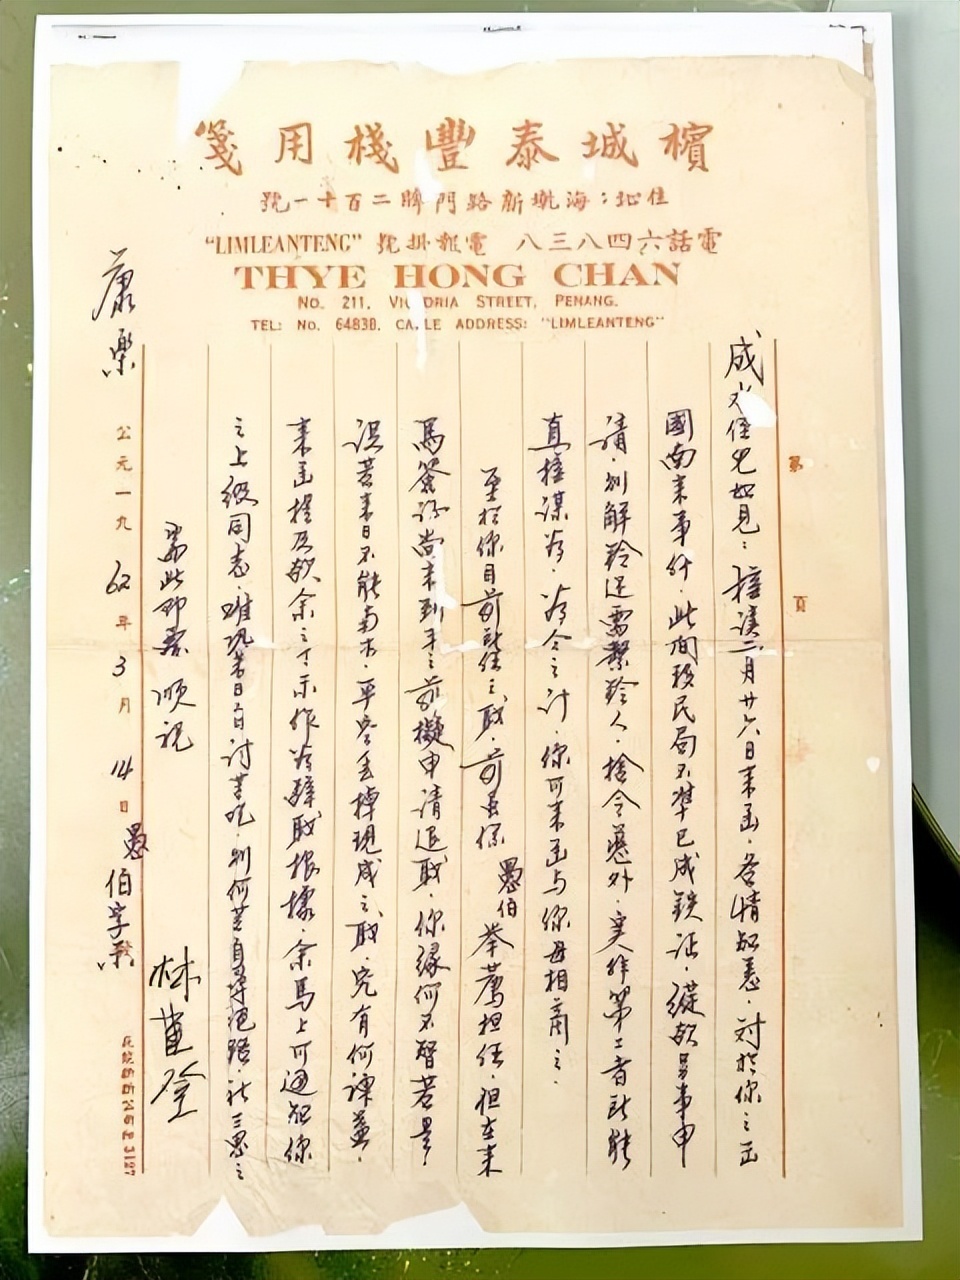 檳城泰豐棧用箋
住址：海墘新路門牌二百十一號
電話六四八三八 電報掛號 “LIMLEANTENG”
THYE HONG CHAN
No. 211, VICTORIA STREET, PENANG.
TEL: No. 64838. CABLE ADDRESS: "LIMLEANTENG"
第 頁
成水侄兒如見：接讀二月廿六日来函，各情知悉，对於你之出
國南来事件，此間移民局不準已成鉄证，縱欲另事申
請，則解鈴还需繫鈴人，捨令慈外，实非第二者所能
直接谋为，为今之计，你可来函与你母相商之。
至於你目前所任之职，前虽係愚伯举荐担任，但在来
馬簽证尚未到手之前擬申请退职，你缘何不智若是，
误若来日不能南来，平空丢掉現成之职，究有何裨益，
来函提及欲余之丁示作为辞职根據，余馬上可通知你
之上级同志，唯恐来日之苦，則何苦自尋绝路，祈三思之
耑此即覆 順祝
康樂
愚伯字啓
林連登
公元一九62年3月14日